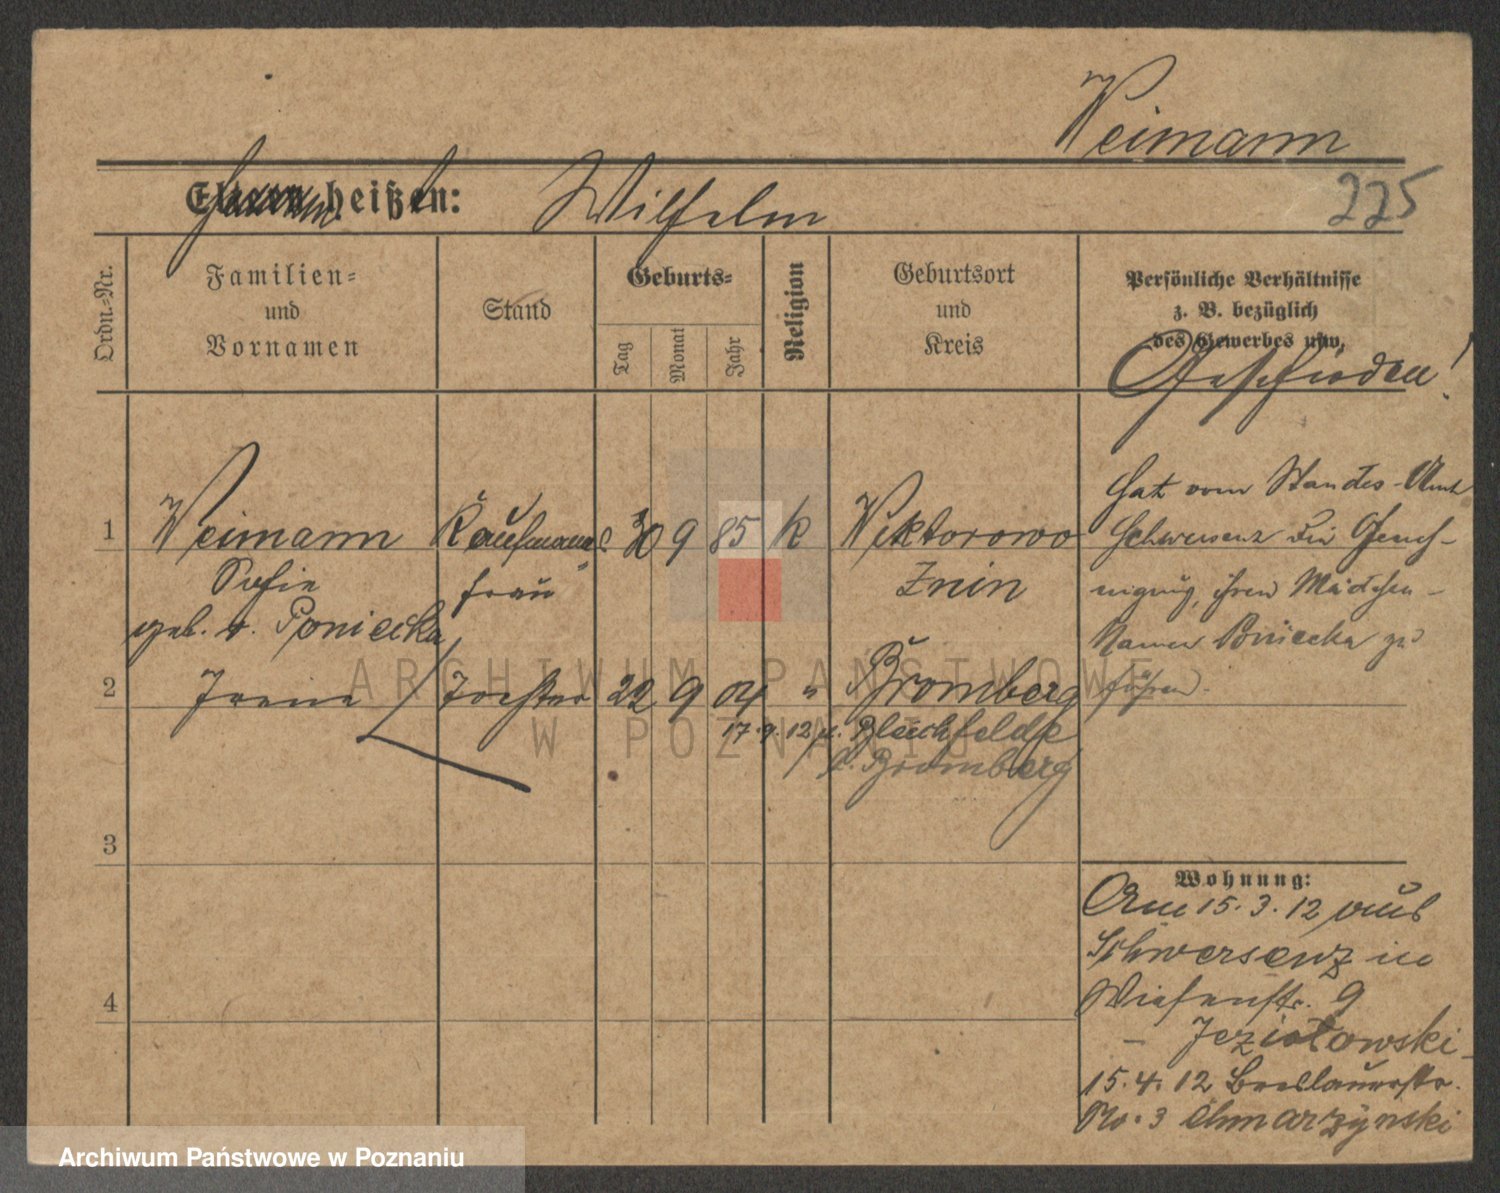 Weimann
Eltern heißen: Wilhelm
225
Ordn.-Nr.
Familien-
und
Vornamen
Stand
Geburts-
Tag
Monat
Jahr
Religion
Geburtsort
und
Kreis
Persönliche Verhältnisse
z. B. bezüglich
des Gewerbes usw.
Geschieden!
1 Weimann Kaufmanns 30 9 85 k Wiktorowo
Sofie frau Znin
geb. v. Poniecka
2 Irene Tochter 22 9 04 " Bromberg
17.9.12 n. Bleichfelde
b. Bromberg
3
4
Hat vom Standes-Amt
Schwersenz die Geneh-
migung, ihren Mädchen-
Namen Poniecka zu
führen.
Wohnung:
Am 15.3.12 aus
Schwersenz in
Wiesenstr. 9
- Jeziołowski -
15.4.12 Breslauerstr.
No. 3 Chmarzynski
ARCHIWUM PAŃSTWOWE
W POZNANIU
Archiwum Państwowe w Poznaniu